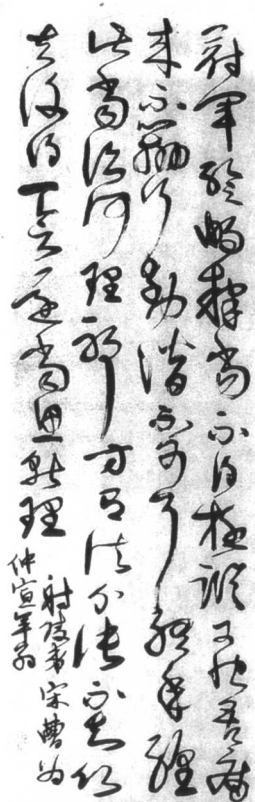 冠軍暫暢釋當不得極蹤可恨吾病
來不辦行動潛不可耳終年纏
此當復何理耶方有諸分張不知
去復得一會還當思就理
射陵宋曹為
仲宣年翁